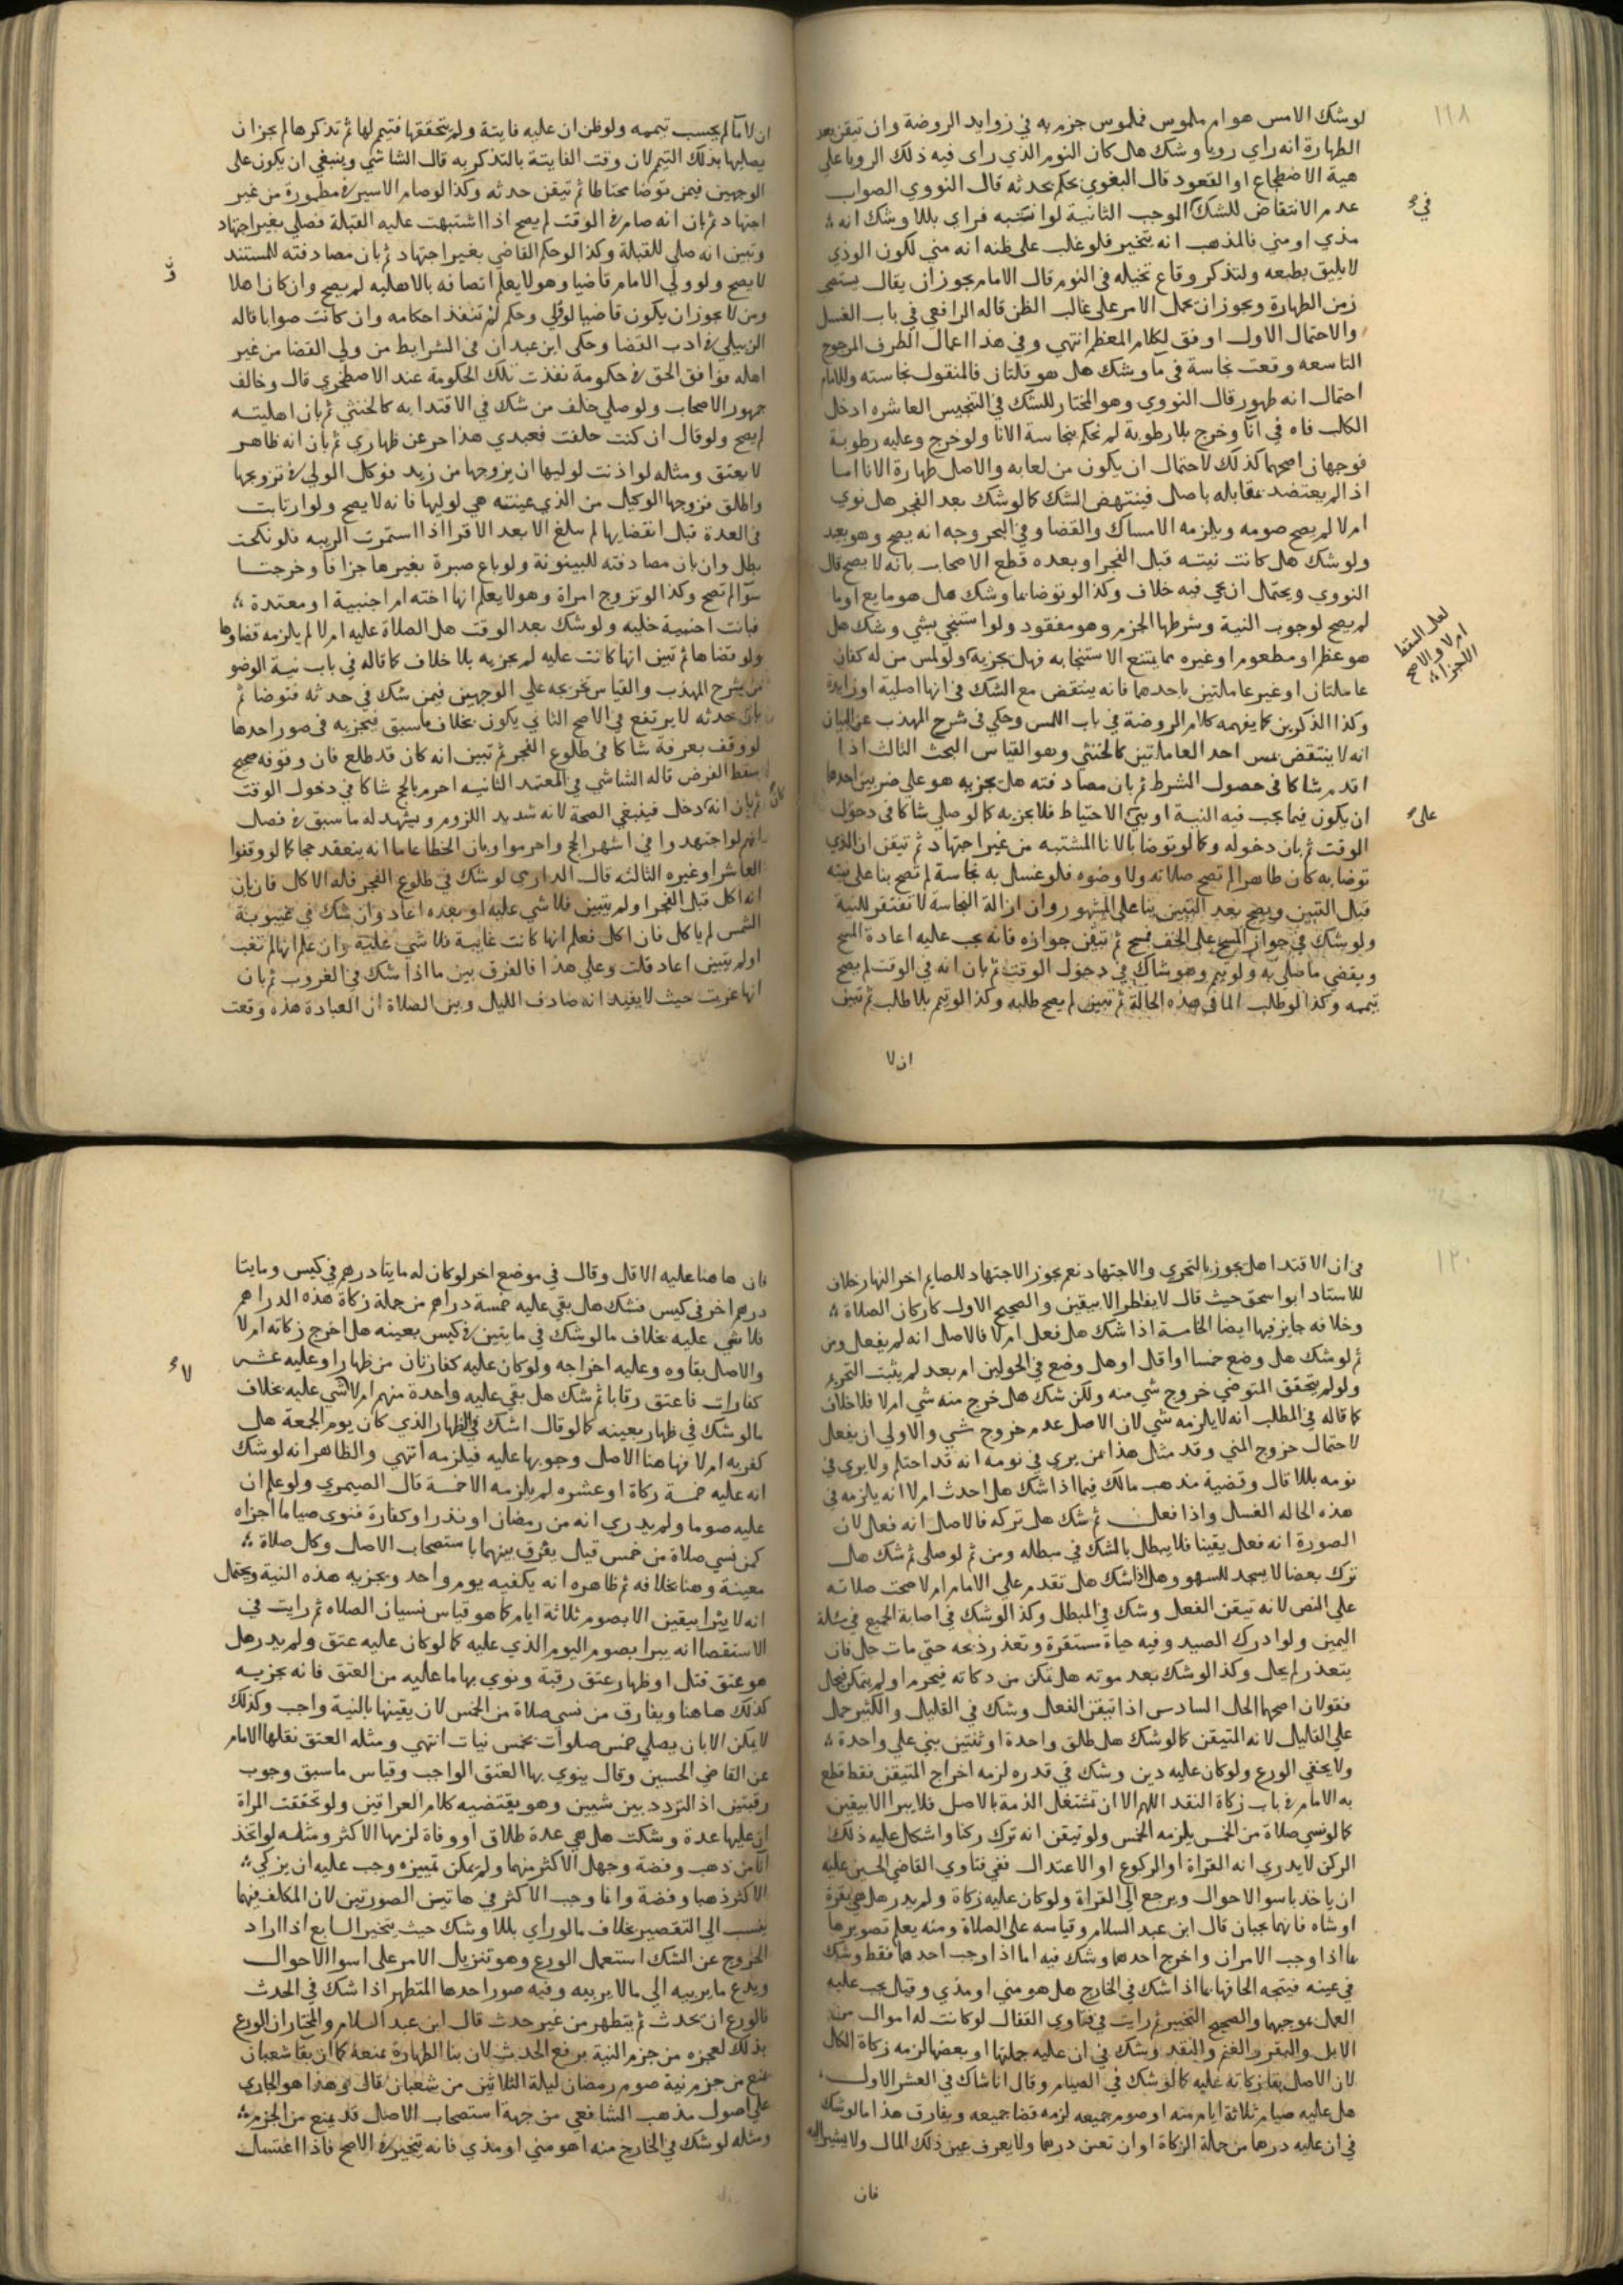 ١١٨
لو شك الامس هو ام ملموس فملموس جزم به في زوايد الروضة وان تيقن بعد
الطهارة انه راي رويا وشك هل كان النوم الذي راى فيه ذلك الرويا على
هية الاضطجاع او القعود قال البغوي يحكم بحدثه قال النووي الصواب
عدم الانتقاض للشك الموجب الثانية لو انتبه فراي بللا وشك انه
في
مذي او مني فالمذهب انه يتخير فلو غلب على ظنه انه مني لكون الوذي
لا يليق بطبعه ولتذكر وقاع تخيله في النوم قال الامام يجوز ان يقال يستصحب
زمن الطهارة ويجوز ان يحمل الامر على غالب الظن قاله الرافعي في باب الغسل
والاحتمال الاول اوفق لكلام المعظم انتهي وفي هذا اعمال الطرف المرجوح
التاسعه وقعت نجاسة في مآ وشك هل هو قلتان فالمنقول نجاسته وللامام
احتمال انه طهور قال النووي وهو المختار للشك في التنجيس العاشره ادخل
الكلب فاه في انآ وخرج بلا رطوبة لم نحكم بنجاسة الانا ولو خرج وعليه رطوبة
فوجهان اصحهما كذلك لاحتمال ان يكون من لعابه والاصل طهارة الانا اما
اذا لم يعتضد مقابله باصل فينتهض الشك كما لو شك بعد الفجر هل نوي
ام لا لم يصح صومه ويلزمه الامساك والقضا وفي البحر وجه انه يصح وهو بعيد
ولو شك هل كانت نيته قبل الفجر او بعده قطع الاصحاب بانه لا يصح قال
النووي ويحتمل ان يجي فيه خلاف وكذا لو توضا بما وشك هل هو مايع او ما
لم يصح لوجوب النية وشرطها الجزم وهو مفقود ولو استنجي بشي وشك هل
هو عظم او مطعوم او غيره مما يمتنع الاستنجا به فهل يجزيه ولو لمس من له كفان
لعل السقط
ام لا والاصح
الاجزا
عاملتان او غير عاملتين باحدهما فانه ينتقض مع الشك في انها اصلية او زايدة
وكذا الذكرين كما يفهمه كلام الروضة في باب اللمس وحكي في شرح المهذب عن البيان
انه لا ينتقض بمس احد العاملتين كالخنثي وهو القياس البحث الثالث اذا
اقدم شاكا في حصول الشرط ثم بان مصادفته هل يجزيه هو علي ضربين احدهما
ان يكون فيما يجب فيه النية او بني الاحتياط فلا يجزيه كما لو صلي شاكا في دخول
على
الوقت ثم بان دخوله وكما لو توضا بالانا المشتبه من غير اجتهاد ثم تيقن ان الذي
توضا به كان طاهرا لم تصح صلاته ولا وضوه فلو غسل به نجاسة لم تصح بنا على نيته
قبل التبين ويصح بعد التبين بنا على المشهور وان ازالة النجاسة لا تفتقر للنية
ولو شك في جواز المسح على الخف فمسح ثم تيقن جوازه فانه يجب عليه اعادة المسح
ويقضي ما صلي به ولو تيمم وهو شاك في دخول الوقت ثم بان انه في الوقت لم يصح
تيممه وكذا لو طلب الما في هذه الحالة ثم تبين لم يصح طلبه وكذا لو تيمم بلا طلب ثم تبين
ان لا
ان لا مآ لم يحسب تيممه ولو ظن ان عليه فايتة ولم يتحققها فتيمم لها ثم تذكرها لم يجز ان
يصليها بذلك التيمم لان وقت الفايتة بالتذكر به قال الشاشي وينبغي ان يكون على
الوجهين فيمن توضا محتاطا ثم تيقن حدثه وكذا لو صام الاسير في مطمورة من غير
اجتهاد ثم بان انه صام في الوقت لم يصح اذا اشتبهت عليه القبلة فصلي بغير اجتهاد
وتبين انه صلي للقبلة وكذا لو حكم القاضي بغير اجتهاد ثم بان مصادفته للمستند
لا يصح ولو ولي الامام قاضيا وهو لا يعلم اتصافه بالاهليه لم يصح وان كان اهلا
ومن لا يجوز ان يكون قاضيا لو ولي وحكم لم تنفذ احكامه وان كانت صوابا قاله
الزبيلي في ادب القضا وحكى ابن عبدان في الشرايط من ولي القضا من غير
اهله فوافق الحق في حكومة نفذت تلك الحكومة عند الاصطخري قال وخالف
جمهور الاصحاب ولو صلي خلف من شك في الاقتدا به كالخنثي ثم بان اهليته
لم يصح ولو قال ان كنت حلفت فعبدي هذا حر عن ظهاري ثم بان انه ظاهر
لا يعتق ومثله لو اذنت لوليها ان يزوجها من زيد فوكل الولي في تزويجها
واطلق فزوجها الوكيل من الذي عينته هي لوليها فانه لا يصح ولو ارتابت
في العدة قبل انقضايها لم سلغ الا بعد الاقرا اذا استمرت الريبه فلو نكحت
بطل وان بان مصادفته للبينونة ولو باع صبرة بغيرها جزافا وخرجتا
سوآ لم تصح وكذا لو تزوج امراة وهو لا يعلم انها اخته ام اجنبية او معتدة
فبانت اجنبية خلية ولو شك بعد الوقت هل الصلاة عليه ام لا لم يلزمه قضاوها
ولو قضاها ثم تبين انها كانت عليه لم يجزيه بلا خلاف كما قاله في باب نية الوضو
من شرح المهذب والقياس تخريجه علي الوجهين فيمن شك في حدثه فتوضا ثم
بان حدثه لا يرتفع في الاصح الثاني يكون بخلاف ما سبق فيجزيه في صور احدها
لو وقف بعرفة شاكا في طلوع الفجر ثم تبين انه كان قد طلع فان وقوفه صحيح
يسقط الفرض قاله الشاشي في المعتمد الثانيه احرم بالحج شاكا في دخول الوقت
كان
ثم بان انه دخل فينبغي الصحة لانه شديد اللزوم ويشهد له ما سبق في فصل
انهم لو اجتهدوا في اشهر الحج واحرموا وبان الخطا عاما انه ينعقد حجا كما لو وقفوا
العاشر او غيره الثالثه قال الدارمي لو شك في طلوع الفجر فله الاكل فان بان
انه اكل قبل الفجر او لم يتبين فلا شي عليه او بعده اعاد وان شك في غيبوبة
الشمس لم ياكل فان اكل فعلم انها كانت غايبة فلا شي عليه وان علم انها لم تغب
او لم يتبين اعاد قلت وعلي هذا فالفرق بين ما اذا شك في الغروب ثم بان
انها غربت حيث لا يفيد انه صادف الليل وبين الصلاة ان العبادة هذه وقعت
١٢٠
في ان الاقتدا هل يجوز بالتحري والاجتهاد نعم يجوز الاجتهاد للصايم اخر النهار خلاف
للاستاد ابو اسحق حيث قال لا يفطر الا بيقين والصحيح الاول كاركان الصلاة
وخلافه جايز فيها ايضا الخامسة اذا شك هل فعل ام لا فالاصل انه لم يفعل ومن
ثم لو شك هل وضع خمسا او اقل او هل وضع في الحولين ام بعد لم يثبت التحريم
ولو لم يتحقق المتوضي خروج شي منه ولكن شك هل خرج منه شي ام لا فلا خلاف
كما قاله في المطلب انه لا يلزمه شي لان الاصل عدم خروج شي والاولي ان يفعل
لاحتمال خروج المني وقد مثل هذا عن يري في نومه انه قد احتلم ولا يري في
نومه بللا قال وقضية مذهب مالك فيما اذا شك هل احدث ام لا انه يلزمه في
هذه الحاله الغسل واذا فعل ثم شك هل تركه فالاصل انه فعل لان
الصورة انه فعل يقينا فلا يبطل بالشك في مبطله ومن ثم لو صلى ثم شك هل
ترك بعضا لا يسجد للسهو وهل اذا شك هل تقدم علي الامام ام لا صحت صلاته
علي النص لانه تيقن الفعل وشك في المبطل وكذا لو شك في اصابة الجميع في مسئلة
اليمين ولو ادرك الصيد وفيه حياة مستقرة وتعذر ذبحه حتي مات حل فان
يتعذر لم يحل وكذا لو شك بعد موته هل تمكن من ذكاته فيحرم او لم يتمكن فيحل
فقولان اصحهما الحل السادس اذا تيقن الفعل وشك في القليل والكثير حمل
علي القليل لانه المتيقن كما لو شك هل طلق واحدة او ثنتين بني علي واحدة
ولا يخفي الورع ولو كان عليه دين وشك في قدره لزمه اخراج المتيقن فقط قطع
به الامام في باب زكاة النقد اللهم الا ان تشتغل الذمة بالاصل فلا يبرا الا بيقين
كما لو نسي صلاة من الخمس يلزمه الخمس ولو تيقن انه ترك ركنا واشكل عليه ذلك
الركن لا يدري انه القراة او الركوع او الاعتدال ففي فتاوي القاضي الحسين عليه
ان ياخذ باسو الاحوال ويرجع الي القراة ولو كان عليه زكاة ولم يدر هل هي بقرة
او شاه فانهما يجبان قال ابن عبد السلام وقياسه على الصلاة ومنه يعلم تصويرها
بما اذا وجب الامران واخرج احدهما وشك فيه اما اذا وجب احدهما فقط وشك
في عينه فيتجه الحاقها بما اذا شك في الخارج هل هو مني او مذي وقيل يجب عليه
العمل بموجبهما والصحيح التخيير ثم رايت في فتاوي القفال لو كانت له اموال من
الابل والبقر والغنم والنقد وشك في ان عليه جملتها او بعضها لزمه زكاة الكل
لان الاصل بقا زكاته عليه كما لو شك في الصيام وقال انا شاك في العشر الاول
هل عليه صيام ثلاثة ايام منه او صوم جميعه لزمه قضا جميعه ويفارق هذا ما لو شك
في ان عليه درهما من جملة الزكاة او ان تعين درهما ولا يعرف عين ذلك المال ولا يشير اليه
فان
فان هاهنا عليه الاقل وقال في موضع اخر لو كان له مايتا درهم في كيس ومايتا
درهم اخر في كيس فشك هل بقي عليه خمسة دراهم من جملة زكاة هذه الدراهم
فلا شي عليه بخلاف ما لو شك في مايتين في كيس بعينه هل اخرج زكاته ام لا
والاصل بقاوه وعليه اخراجه ولو كان عليه كفارتان من ظهار او عليه عشر
لا
كفارات فاعتق رقابا ثم شك هل بقي عليه واحدة منهم ام لا شي عليه بخلاف
ما لو شك في ظهار بعينه كما لو قال اشك في الظهار الذي كان يوم الجمعة هل
كفر به ام لا فها هنا الاصل وجوبها عليه فيلزمه انتهي والظاهر انه لو شك
انه عليه خمسة زكاة او عشره لم يلزمه الا خمسة قال الصيمري ولو علم ان
عليه صوما ولم يدري انه من رمضان او نذر او كفارة فنوي صياما اجزاه
كمن نسي صلاة من خمس قيل يفرق بينهما باستصحاب الاصل وكل صلاة
معينة وهنا بخلافه ثم ظاهره انه يكفيه يوم واحد ويجزيه هذه النية ويحتمل
انه لا يبرا بيقين الا بصوم ثلاثة ايام كما هو قياس نسيان الصلاه ثم رايت في
الاستقصا انه يبرا بصوم اليوم الذي عليه كما لو كان عليه عتق ولم يدر هل
هو عتق قتل او ظهار عتق رقبة ونوي بها ما عليه من العتق فانه يجزيه
كذلك هاهنا ويفارق من نسي صلاة من الخمس لان يقينها بالنية واجب وكذلك
لا يمكن الا بان يصلي خمس صلوات بخمس نيات انتهي ومثله العتق نقلها الامام
عن القاضي الحسين وقال ينوي بها العتق الواجب وقياس ما سبق وجوب
رقبتين اذ التردد بين شيين وهو يقتضيه كلام العراقيين ولو تحققت المراة
ان عليها عدة وشكت هل هي عدة طلاق او وفاة لزمها الاكثر ومثله لو اتخذ
انآ من ذهب وفضة وجهل الاكثر منهما ولم يمكن تمييزه وجب عليه ان يزكي
الاكثر ذهبا وفضة وانما وجب الاكثر في هاتين الصورتين لان المكلف فيهما
ينسب الي التقصير بخلاف ما لو راي بللا وشك حيث يتخير السابع اذا اراد
الخروج عن الشك استعمل الورع وهو تنزيل الامر على اسوا الاحوال
ويدع ما يريبه الي ما لا يريبه وفيه صور احدها المتطهر اذا شك في الحدث
فالورع ان يحدث ثم يتطهر من غير حدث قال ابن عبد السلام والمختار ان الورع
بذلك لعجزه من جزم النية برفع الحدث لان بنا الطهارة يمنعه كما ان بقا شعبان
يمنع من جزم نية صوم رمضان ليلة الثلاثين من شعبان قال وهذا هو الجاري
علي اصول مذهب الشافعي من جهة استصحاب الاصل قد يمنع من الجزم
ومثله لو شك في الخارج منه اهو مني او مذي فانه يتخير في الاصح فاذا اغتسل